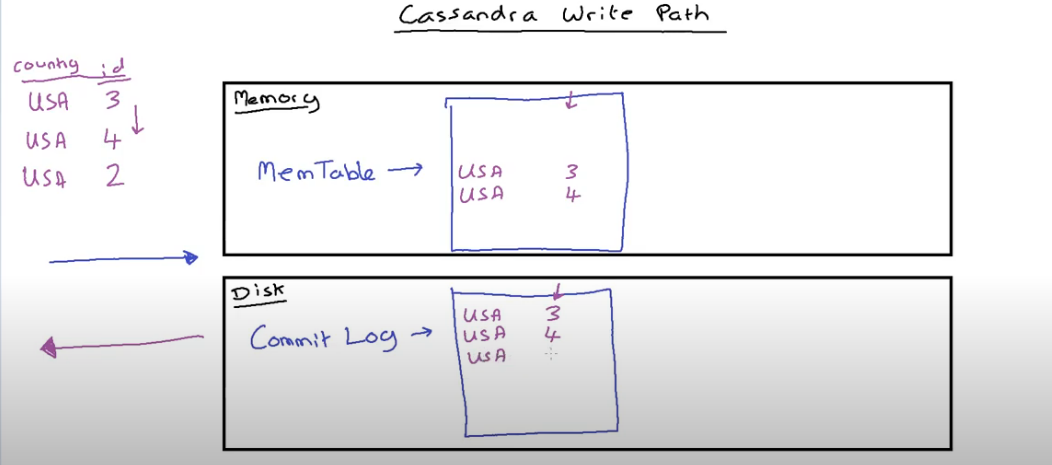 Cassandra Write Path
country id
USA 3
USA 4
USA 2
Memory
MemTable →
USA 3
USA 4
Disk
Commit Log →
USA 3
USA 4
USA